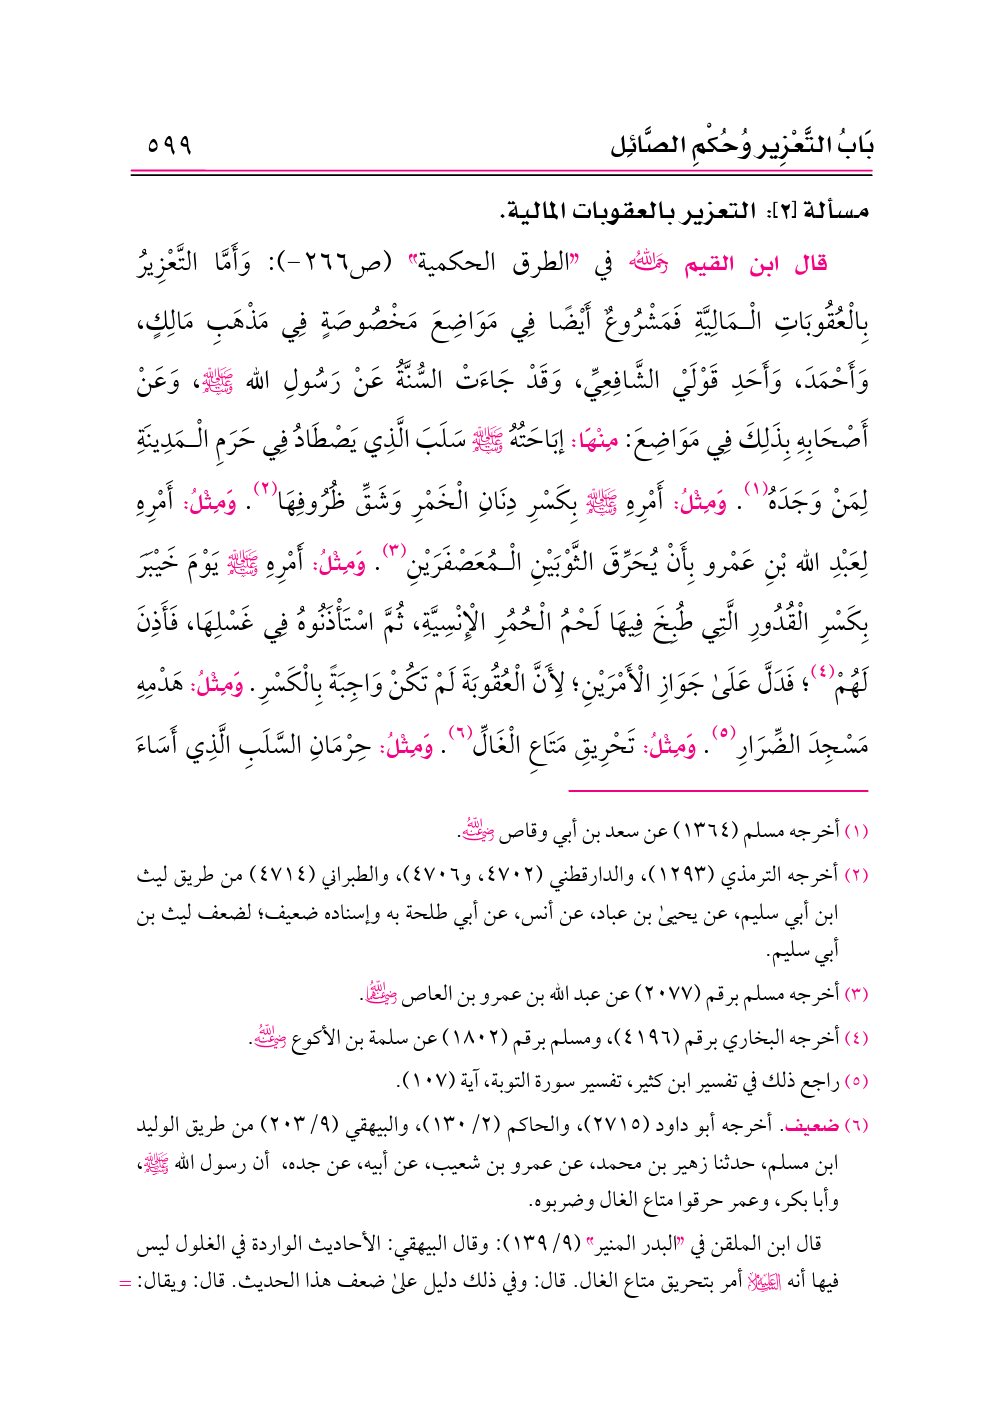 بَابُ التَّعْزِيرِ وَحُكْمِ الصَّائِل ٥٩٩
مسألة [٢]: التعزير بالعقوبات المالية.
قال ابن القيم رحمه الله في "الطرق الحكمية" (ص٢٦٦-): وَأَمَّا التَّعْزِيرُ
بِالْعُقُوبَاتِ الْـمَالِيَّةِ فَمَشْرُوعٌ أَيْضًا فِي مَوَاضِعَ مَخْصُوصَةٍ فِي مَذْهَبِ مَالِكٍ،
وَأَحْمَدَ، وَأَحَدِ قَوْلَيْ الشَّافِعِيِّ، وَقَدْ جَاءَتْ السُّنَّةُ عَنْ رَسُولِ الله ﷺ، وَعَنْ
أَصْحَابِهِ بِذَلِكَ فِي مَوَاضِعَ: مِنْهَا: إبَاحَتُهُ ﷺ سَلَبَ الَّذِي يَصْطَادُ فِي حَرَمِ الْـمَدِينَةِ
لِمَنْ وَجَدَهُ(١). وَمِثْلُ: أَمْرِهِ ﷺ بِكَسْرِ دِنَانِ الْخَمْرِ وَشَقِّ ظُرُوفِهَا(٢). وَمِثْلُ: أَمْرِهِ
لِعَبْدِ الله بْنِ عَمْرو بِأَنْ يُحَرِّقَ الثَّوْبَيْنِ الْـمُعَصْفَرَيْنِ(٣). وَمِثْلُ: أَمْرِهِ ﷺ يَوْمَ خَيْبَرَ
بِكَسْرِ الْقُدُورِ الَّتِي طُبِخَ فِيهَا لَحْمُ الْحُمُرِ الْإِنْسِيَّةِ، ثُمَّ اسْتَأْذَنُوهُ فِي غَسْلِهَا، فَأَذِنَ
لَهُمْ(٤)؛ فَدَلَّ عَلَىٰ جَوَازِ الْأَمْرَيْنِ؛ لِأَنَّ الْعُقُوبَةَ لَمْ تَكُنْ وَاجِبَةً بِالْكَسْرِ. وَمِثْلُ: هَدْمِهِ
مَسْجِدَ الضِّرَارِ(٥). وَمِثْلُ: تَحْرِيقِ مَتَاعِ الْغَالِّ(٦). وَمِثْلُ: حِرْمَانِ السَّلَبِ الَّذِي أَسَاءَ
(١) أخرجه مسلم (١٣٦٤) عن سعد بن أبي وقاص رضي الله عنه.
(٢) أخرجه الترمذي (١٢٩٣)، والدارقطني (٤٧٠٢، و٤٧٠٦)، والطبراني (٤٧١٤) من طريق ليث
ابن أبي سليم، عن يحيىٰ بن عباد، عن أنس، عن أبي طلحة به وإسناده ضعيف؛ لضعف ليث بن
أبي سليم.
(٣) أخرجه مسلم برقم (٢٠٧٧) عن عبد الله بن عمرو بن العاص رضي الله عنهما.
(٤) أخرجه البخاري برقم (٤١٩٦)، ومسلم برقم (١٨٠٢) عن سلمة بن الأكوع رضي الله عنه.
(٥) راجع ذلك في تفسير ابن كثير، تفسير سورة التوبة، آية (١٠٧).
(٦) ضعيف. أخرجه أبو داود (٢٧١٥)، والحاكم (٢/ ١٣٠)، والبيهقي (٩/ ٢٠٣) من طريق الوليد
ابن مسلم، حدثنا زهير بن محمد، عن عمرو بن شعيب، عن أبيه، عن جده، أن رسول الله ﷺ،
وأبا بكر، وعمر حرقوا متاع الغال وضربوه.
قال ابن الملقن في "البدر المنير" (٩/ ١٣٩): وقال البيهقي: الأحاديث الواردة في الغلول ليس
فيها أنه عليه السلام أمر بتحريق متاع الغال. قال: وفي ذلك دليل علىٰ ضعف هذا الحديث. قال: ويقال: =